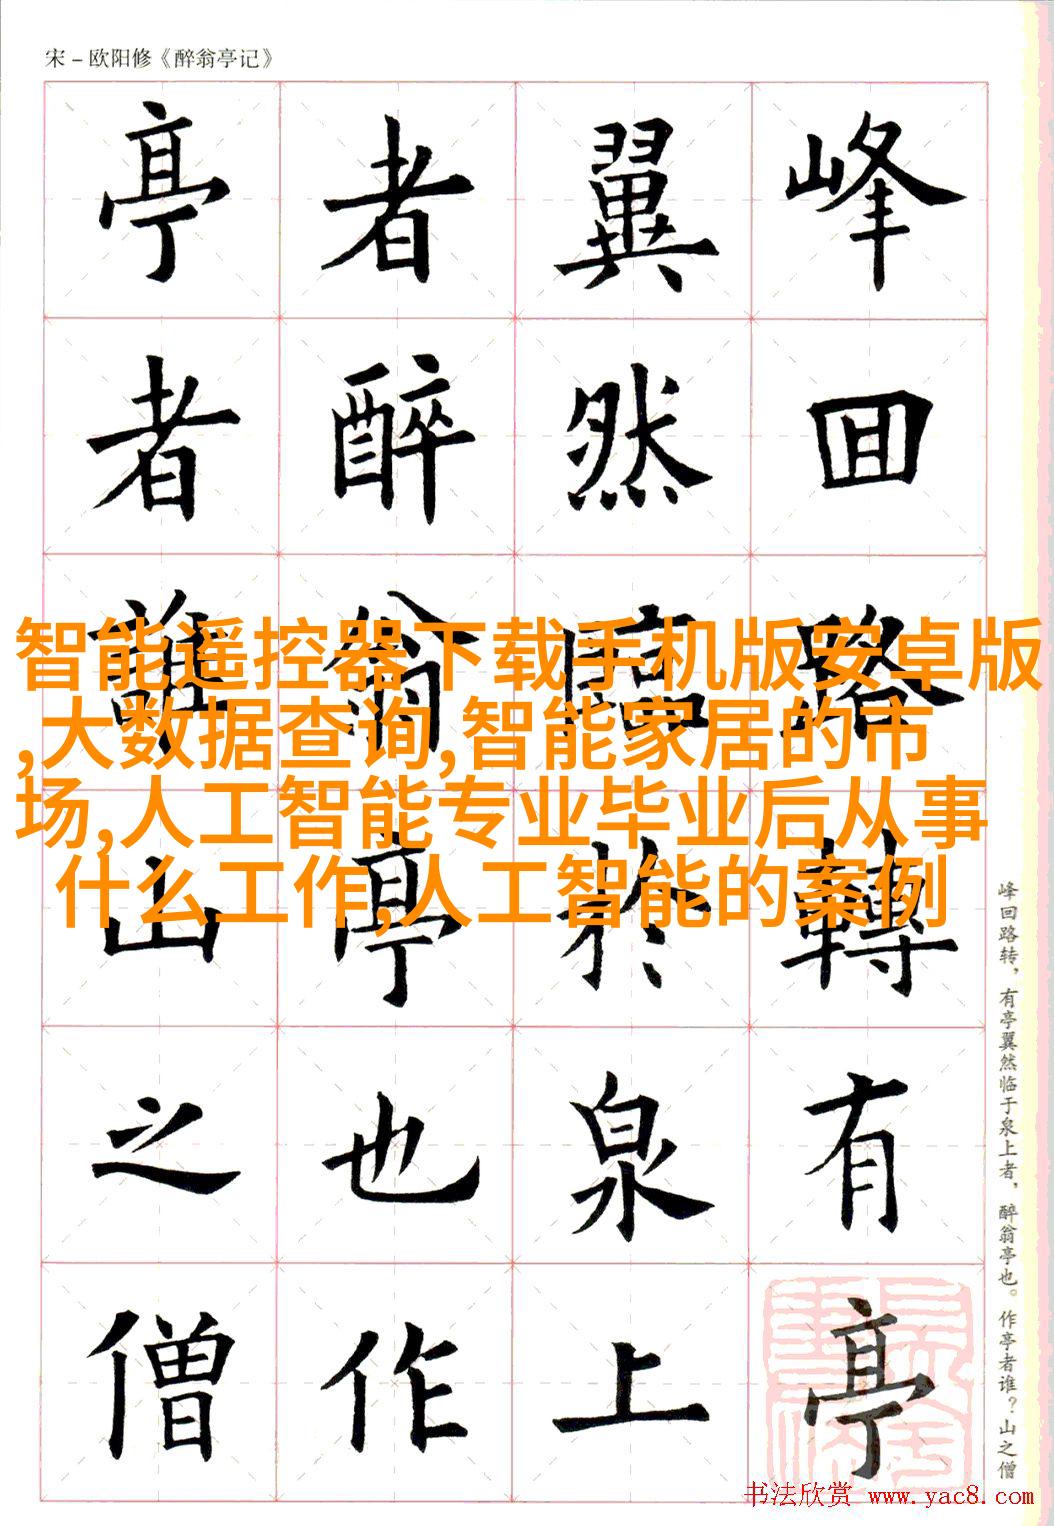 宋－欧阳修《醉翁亭记》
峰回路轉有亭
翼然臨於泉上
者醉翁亭也作
亭者誰山之僧
智能遥控器下载手机版安卓版
,大数据查询,智能家居的市
场,人工智能专业毕业后从事
什么工作,人工智能的案例
峰回路转，有亭翼然临于泉上者，醉翁亭也。作亭者谁？山之僧
书法欣赏 www.yac8.com